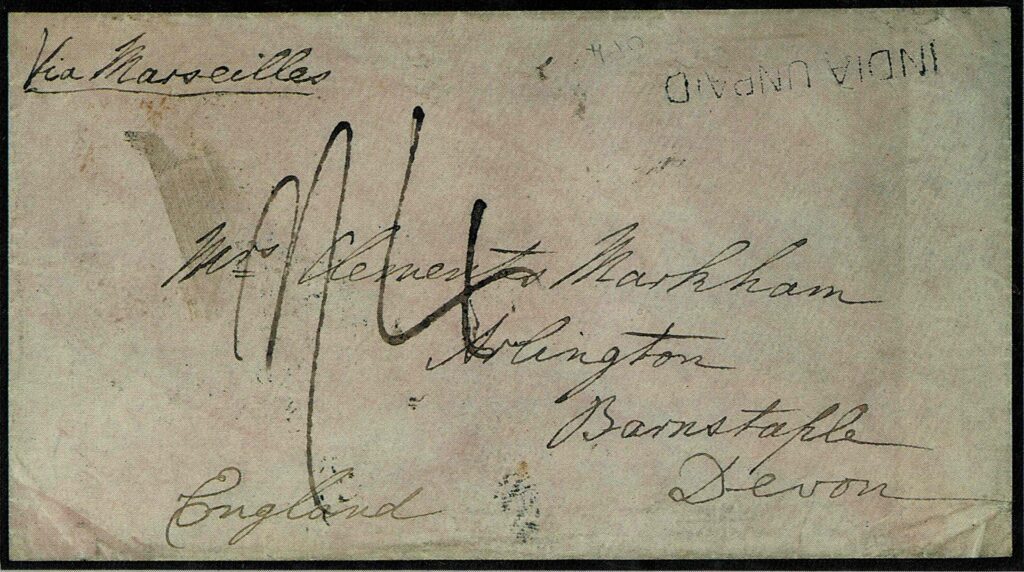 Via Marseilles
INDIA UNPAID
Mrs Clements Markham
Arlington
Barnstaple
Devon
England